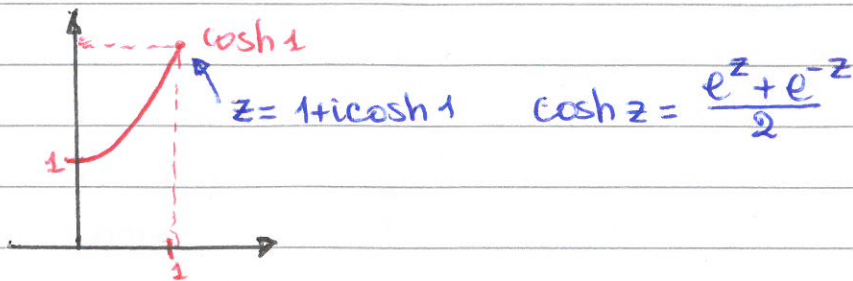 cosh 1
z = 1+i cosh 1 cosh z = (e^z + e^-z)/2
1
1